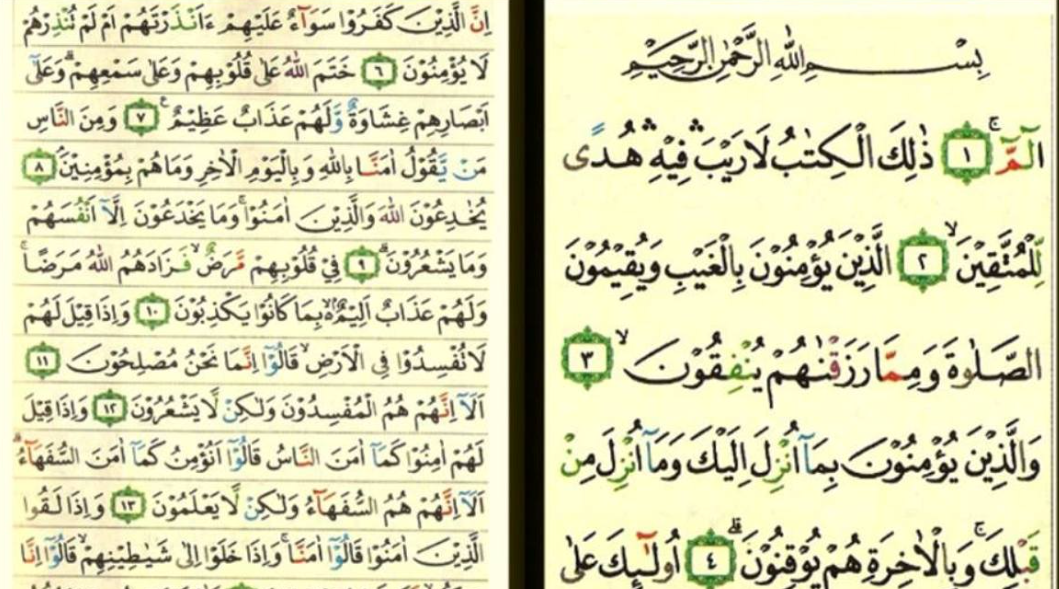 بِسْمِ اللهِ الرَّحْمٰنِ الرَّحِيْمِ
الٓمّٓ ۚ ١ ذٰلِكَ الْكِتٰبُ لَا رَيْبَ ۛ فِيْهِ ۛ هُدًى
لِّلْمُتَّقِيْنَ ۙ ٢ الَّذِيْنَ يُؤْمِنُوْنَ بِالْغَيْبِ وَيُقِيْمُوْنَ
الصَّلٰوةَ وَمِمَّا رَزَقْنٰهُمْ يُنْفِقُوْنَ ۙ ٣
وَالَّذِيْنَ يُؤْمِنُوْنَ بِمَآ اُنْزِلَ اِلَيْكَ وَمَآ اُنْزِلَ مِنْ
قَبْلِكَ ۚ وَبِالْاٰخِرَةِ هُمْ يُوْقِنُوْنَ ۗ ٤ اُولٰٓئِكَ عَلٰى
اِنَّ الَّذِيْنَ كَفَرُوْا سَوَآءٌ عَلَيْهِمْ ءَاَنْذَرْتَهُمْ اَمْ لَمْ تُنْذِرْهُمْ
لَا يُؤْمِنُوْنَ ٦ خَتَمَ اللهُ عَلٰى قُلُوْبِهِمْ وَعَلٰى سَمْعِهِمْ ۗ وَعَلٰٓى
اَبْصَارِهِمْ غِشَاوَةٌ وَّلَهُمْ عَذَابٌ عَظِيْمٌ ٧ وَمِنَ النَّاسِ
مَنْ يَّقُوْلُ اٰمَنَّا بِاللهِ وَبِالْيَوْمِ الْاٰخِرِ وَمَا هُمْ بِمُؤْمِنِيْنَ ۘ ٨
يُخٰدِعُوْنَ اللهَ وَالَّذِيْنَ اٰمَنُوْا ۚ وَمَا يَخْدَعُوْنَ اِلَّآ اَنْفُسَهُمْ
وَمَا يَشْعُرُوْنَ ۗ ٩ فِيْ قُلُوْبِهِمْ مَّرَضٌ ۙ فَزَادَهُمُ اللهُ مَرَضًا ۚ
وَلَهُمْ عَذَابٌ اَلِيْمٌ ۢ ۙ بِمَا كَانُوْا يَكْذِبُوْنَ ١٠ وَاِذَا قِيْلَ لَهُمْ
لَا تُفْسِدُوْا فِى الْاَرْضِ ۙ قَالُوْٓا اِنَّمَا نَحْنُ مُصْلِحُوْنَ ١١
اَلَآ اِنَّهُمْ هُمُ الْمُفْسِدُوْنَ وَلٰكِنْ لَّا يَشْعُرُوْنَ ١٢ وَاِذَا قِيْلَ
لَهُمْ اٰمِنُوْا كَمَآ اٰمَنَ النَّاسُ قَالُوْٓا اَنُؤْمِنُ كَمَآ اٰمَنَ السُّفَهَآءُ ۗ
اَلَآ اِنَّهُمْ هُمُ السُّفَهَآءُ وَلٰكِنْ لَّا يَعْلَمُوْنَ ١٣ وَاِذَا لَقُوا
الَّذِيْنَ اٰمَنُوْا قَالُوْٓا اٰمَنَّا ۚ وَاِذَا خَلَوْا اِلٰى شَيٰطِيْنِهِمْ ۙ قَالُوْٓا اِنَّا